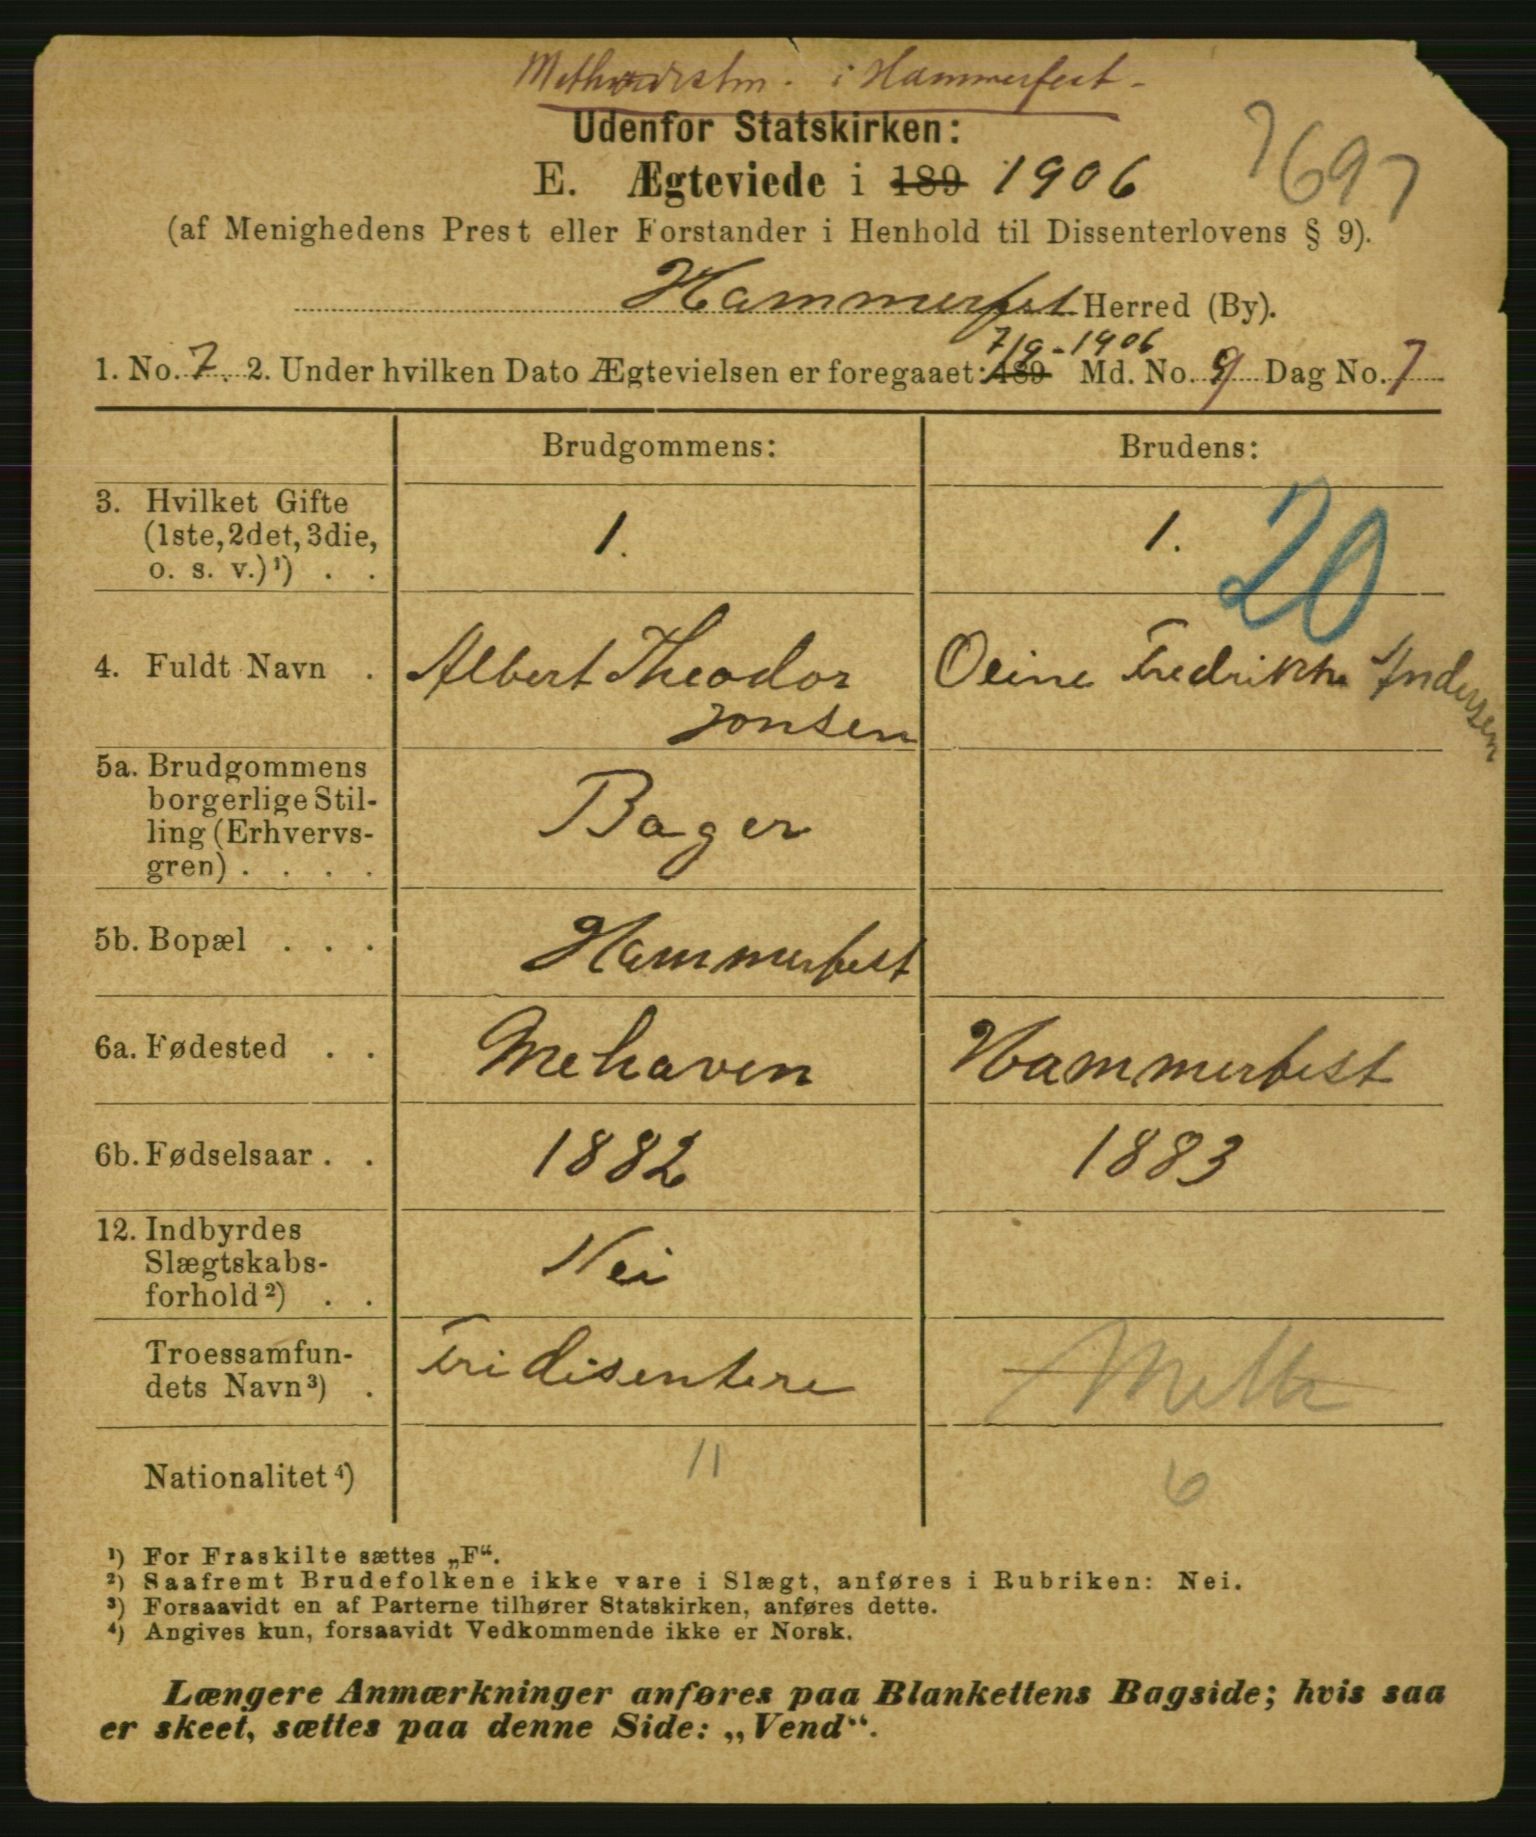 Methodistm. i Hammerfest -
Udenfor Statskirken:
7697
E. Ægteviede i 189 1906
(af Menighedens Prest eller Forstander i Henhold til Dissenterlovens § 9).
Hammerfest Herred (By).
7/9 - 1906
1. No. 7. 2. Under hvilken Dato Ægtevielsen er foregaaet: 189 Md. No. 9 Dag No. 7
Brudgommens: Brudens:
3. Hvilket Gifte (1ste, 2det, 3die, o. s. v.)¹) . . 1. 1.
20
4. Fuldt Navn . Albert Theodor Jonsen Oline Fredrikke Andersen
5a. Brudgommens borgerlige Stilling (Erhvervsgren) . . . . Bager
5b. Bopæl . . . Hammerfest
6a. Fødested . . Mehaven Hammerfest
6b. Fødselsaar . . 1882 1883
12. Indbyrdes Slægtskabsforhold²) . . Nei
Troessamfundets Navn³) . Fridisentere Meth
Nationalitet⁴) 11 6
¹) For Fraskilte sættes „F“.
²) Saafremt Brudefolkene ikke vare i Slægt, anføres i Rubriken: Nei.
³) Forsaavidt en af Parterne tilhører Statskirken, anføres dette.
⁴) Angives kun, forsaavidt Vedkommende ikke er Norsk.
Længere Anmærkninger anføres paa Blankettens Bagside; hvis saa
er skeet, sættes paa denne Side: „Vend“.